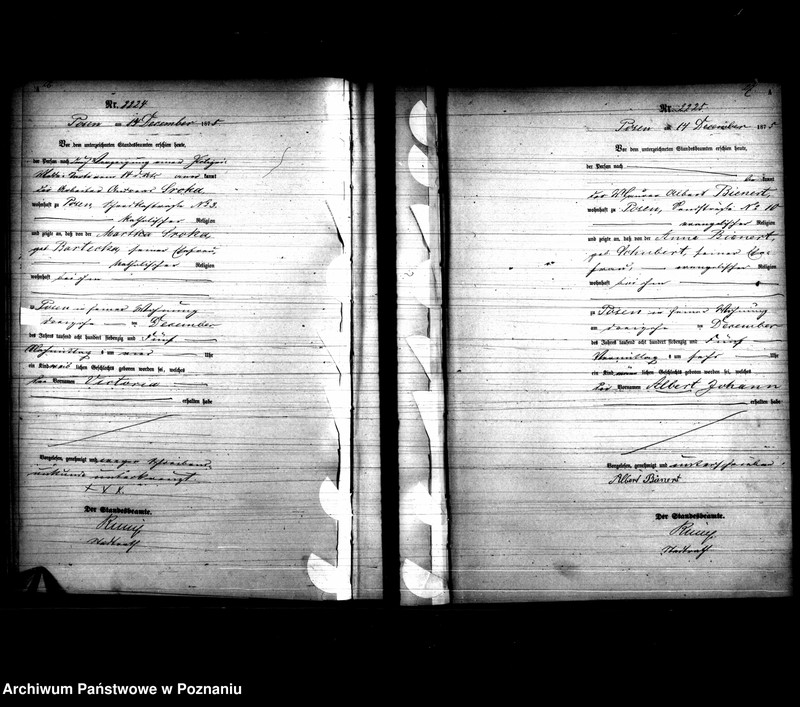 Nr. 2224
Posen am 14 December 1875.
Vor dem unterzeichneten Standesbeamten erschien heute,
der Person nach durch
kannt
der Arbeiter Sroka
wohnhaft zu Posen, No 3.
katholischer Religion
und zeigte an, daß von der Martha Sroka,
geb. Bartecka, seiner Ehefrau,
katholischer Religion
wohnhaft bei ihm
zu Posen in seiner Wohnung
am dreizehn ten December
des Jahres tausend acht hundert siebenzig und fünf
Nachmittag s um vier Uhr
ein Kind weib lichen Geschlechts geboren worden sei, welches
den Vornamen Victoria
erhalten habe
Vorgelesen, genehmigt und wegen Schreibens-
unkunde unterkreuzt
+ + +.
Der Standesbeamte.
Stadtrath
Nr. 2225
Posen am 14 December 1875
Vor dem unterzeichneten Standesbeamten erschien heute,
der Person nach
be kannt
der Albert Bienert,
wohnhaft zu Posen, No 10
evangelischer Religion
und zeigte an, daß von der Anna Bienert,
geb. Schubert, seiner Ehe-
frau, evangelischer Religion
wohnhaft bei ihm
zu Posen in seiner Wohnung
am dreizehn ten December
des Jahres tausend acht hundert siebenzig und fünf
Vormittag s um sechs Uhr
ein Kind männ lichen Geschlechts geboren worden sei, welches
die Vornamen Albert Johann
erhalten habe
Vorgelesen, genehmigt und unterschrieben
Albert Bienert
Der Standesbeamte.
Stadtrath
Archiwum Państwowe w Poznaniu